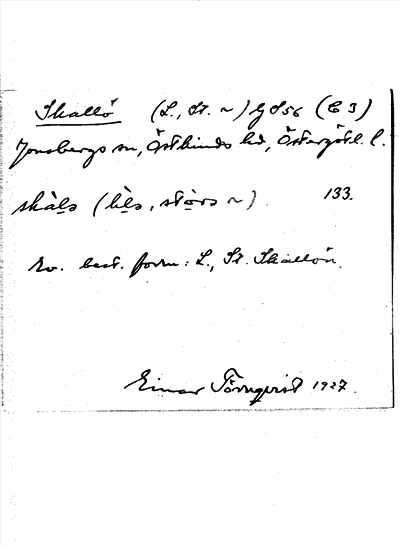 Skallö (L., St. ~) GS56 (C 3)
Jonsbergs sn, Östkinds hd, Östergötl. l.
133.
Ev. best. form: L., St. Skallön.
Einar Törnqvist 1927.